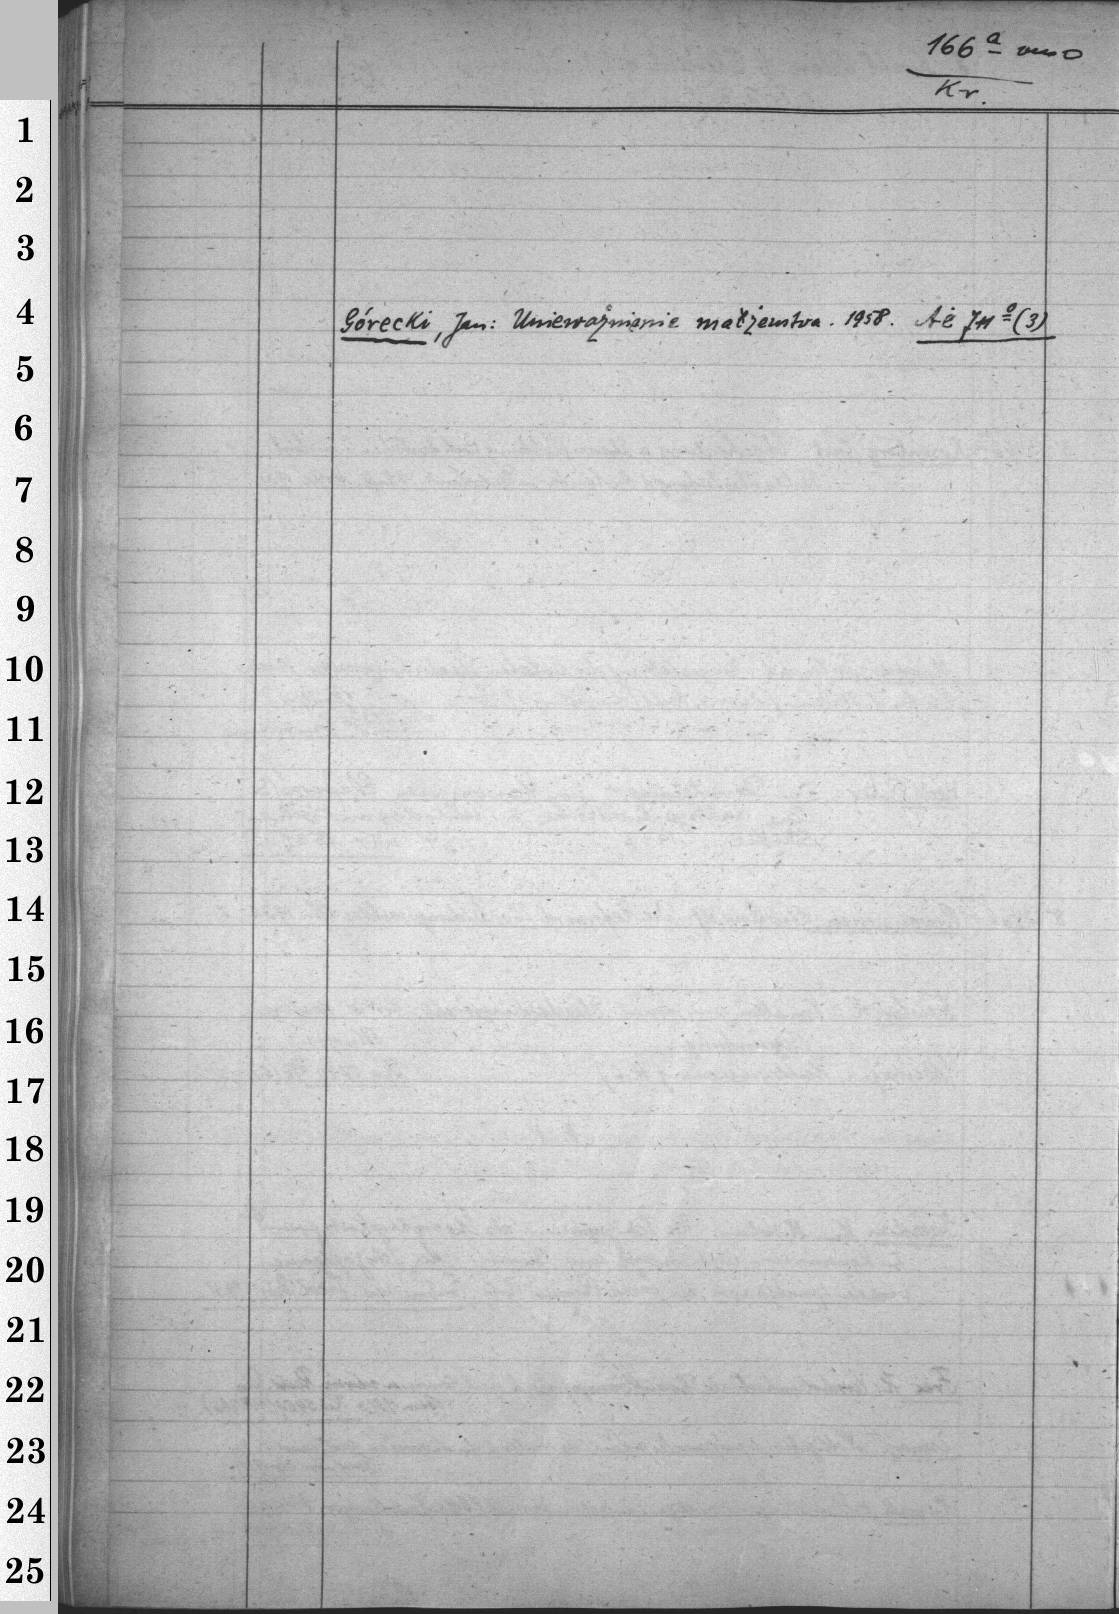 166a verso
Kr.
1
2
3
4
Górecki, Jan: Unieważnienie małżenstwa. 1958. Aë 711º (3)
5
6
7
8
9
10
11
12
13
14
15
16
17
18
19
20
21
22
23
24
25